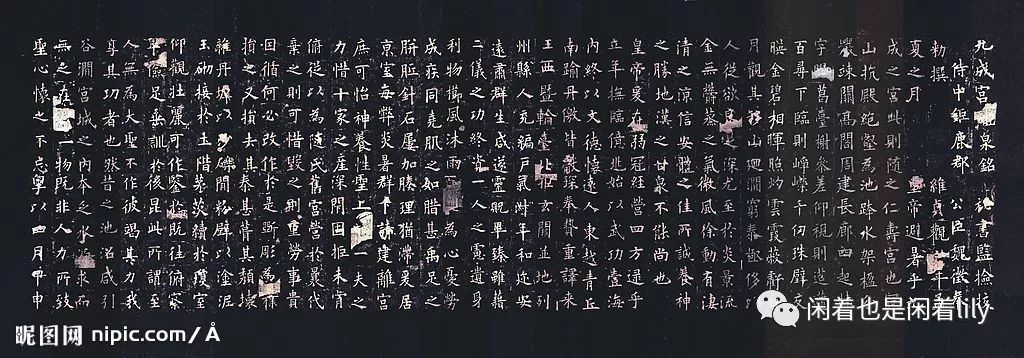 九成宮醴泉銘 秘書監檢校
侍中鉅鹿郡公臣魏徵奉
勅撰 維貞觀六年孟
夏之月 皇帝避暑乎九
成之宮此則隨之仁壽宮也
山抗殿絕壑為池跨水架楹
巖竦闕高閣周建長廊四起
宇膠葛臺榭參差仰視則迢
百尋下臨則崢嶸千仞珠璧交
暎金碧相暉照灼雲霞蔽虧
月觀其移山迴澗窮泰極侈
人從欲良足深尤至於炎景流
金無鬱蒸之氣微風徐動有淒
清之涼信安體之佳所誠養神
之勝地漢之甘泉不能尚也
皇帝爰在弱冠經營四方逮乎
立年撫臨億兆始以武功壹海
內終以文德懷遠人東越青丘
南踰丹徼皆獻琛奉贄重譯來
王西暨輪臺北拒玄闕並地列
州縣人充編戶氣淑年和迩安
遠肅群生咸遂靈貺畢臻雖藉
二儀之功終資一人之慮遺身
利物櫛風沐雨為心憂勞
成疾同堯肌之如腊甚禹足之
胼胝針石屢加腠理猶滯爰居
京室每弊炎暑群下請建離宮
庶可怡神養性聖上一夫之
力惜十家之產深閉固拒未肯
俯從以為隨氏舊宮營於曩代
棄之則可惜毀之則重勞事貴
因循何必改作於是斲彫為樸
損之又損去其泰甚葺其頹壞
雜丹墀以沙礫間粉壁以塗泥
玉砌接於土階茅茨續於瓊室
仰觀壯麗可作鑒於既往俯察
卑儉足垂訓於後昆此所謂至
人無為大聖不作彼竭其力我
享其功者也然昔之池沼咸引
谷澗宮城之內本乏水源求而
無之在乎一物既非人力所致
聖心懷之不忘粵以四月甲申
昵图网 nipic.com/Å
闲着也是闲着lily